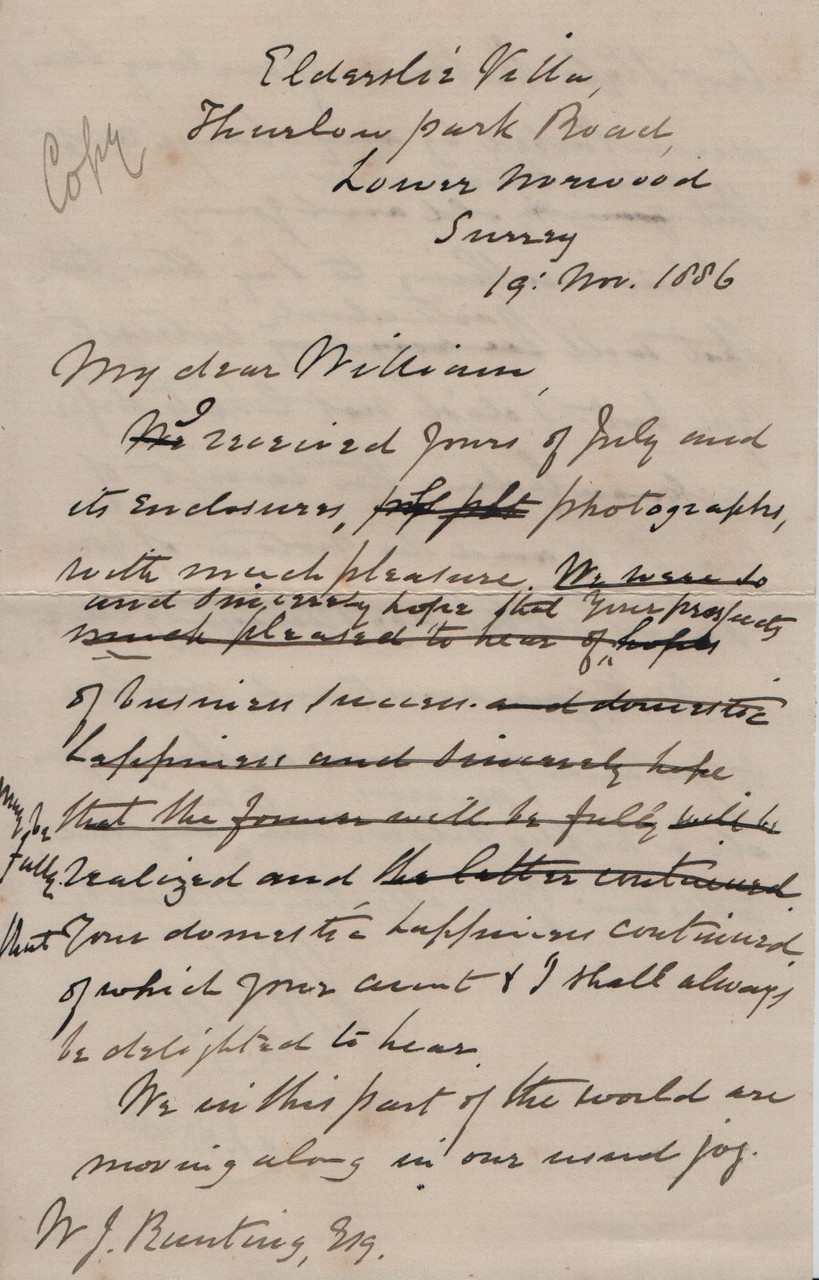 Copy
Elderslie Villa,
Thurlow park Road,
Lower Norwood
Surrey
19: Nov. 1886
My dear William,
We I received yours of July and
its enclosures, photographs,
with much pleasure. We were so
and sincerely hope that your prospects
much pleased to hear of hopes
of business success. and domestic
happiness and sincerely hope
that the former will be fully will be
may be
fully
realized and the latter continued
that your domestic happiness continued
of which your aunt & I shall always
be delighted to hear
We in this part of the world are
moving along in our usual jog.
W J. Bunting, Esq.